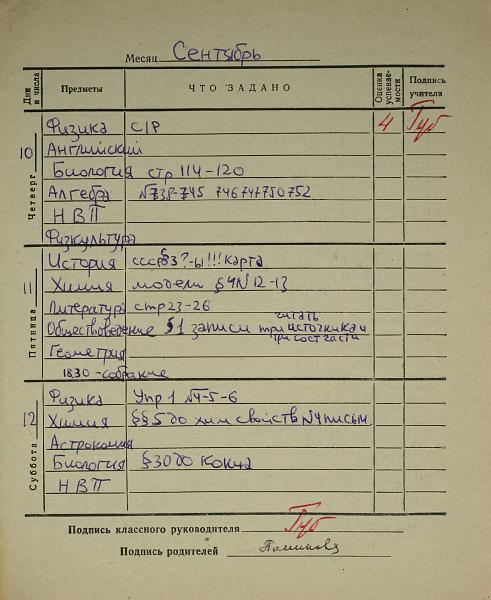 Месяц Сентябрь
Дни и числа Предметы ЧТО ЗАДАНО Оценка успеваемости Подпись учителя
10 Четверг
Физика С/Р 4 Губ
Английский
Биология стр 114-120
Алгебра №738-745 746 747 750 752
НВП
Физкультура
11 Пятница
История СССР §3 ?-ы!!! Карта
Химия модели §4 N12-13
Литература стр 23-26
читать
Обществоведение §1 записи три источника и
три сост части
Геометрия
18.30 - собрание
12 Суббота
Физика Упр 1 №4-5-6
Химия §§5 до хим свойств №4 письм.
Астрономия
Биология §30 до конца
НВП
Подпись классного руководителя Губ
Подпись родителей